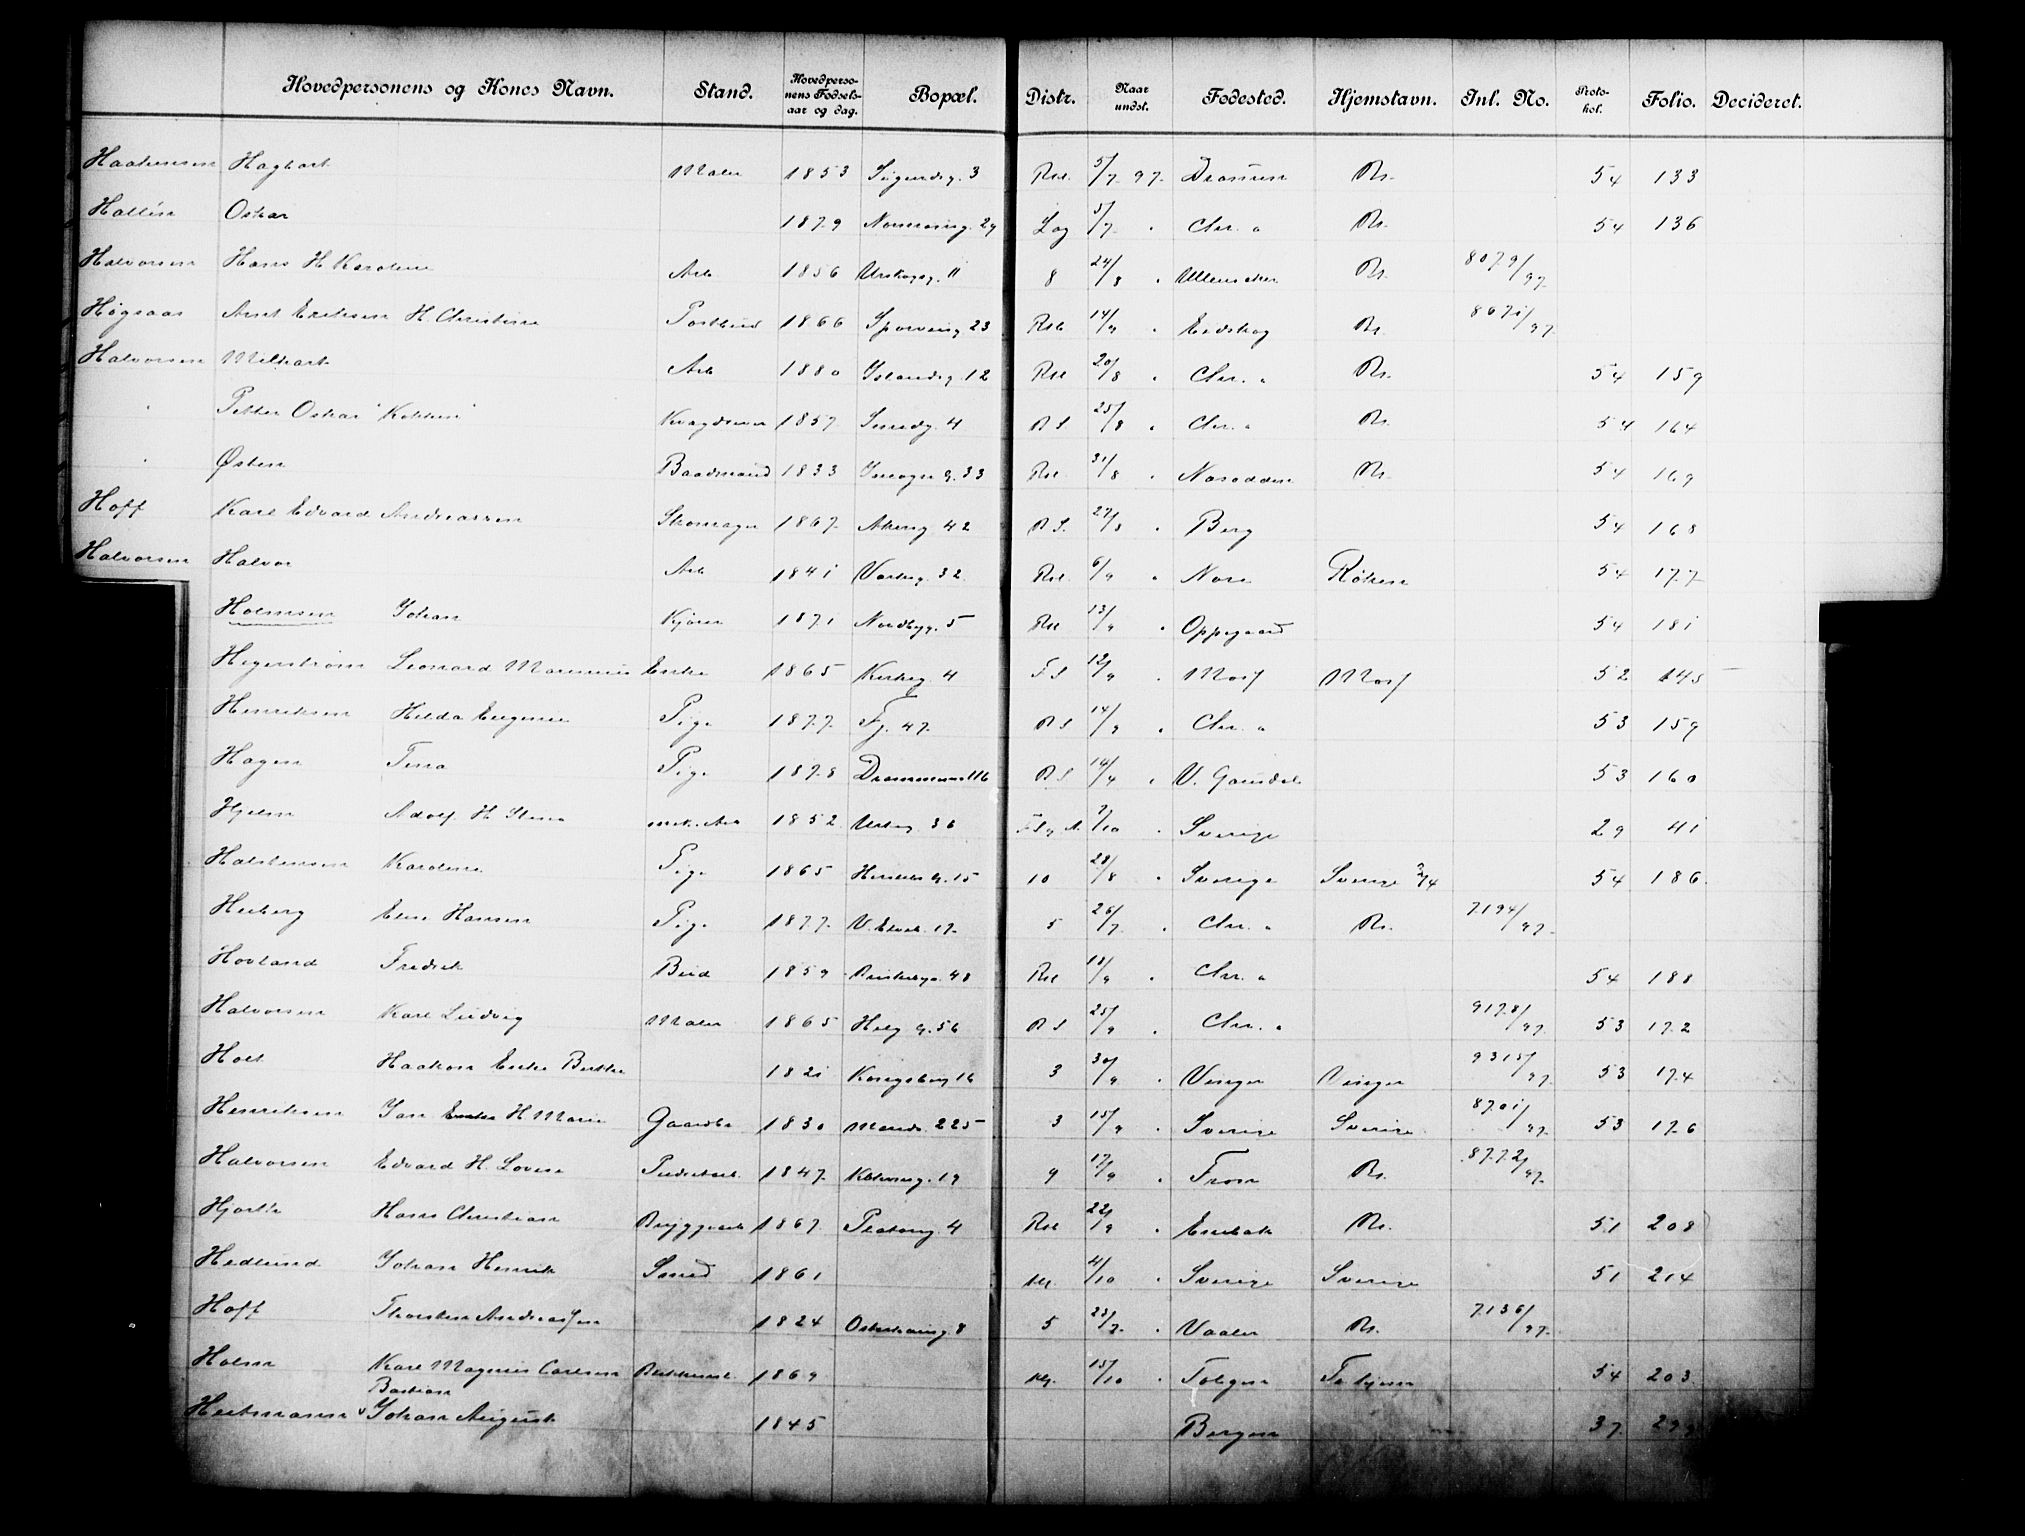 Hovedpersonens og Kones Navn. Stand. Hovedpersonens Fødselsaar og dag. Bopæl. Distr. Naar undst. Fødested. Hjemstavn. Inl. No. Protokol. Folio. Decideret.
Hagbart Maler 1853 3 Rst. 5/7 97 Rs. 54 133
Oskar 1879 Lag 5/7 " Chr. a Rs. 54 136
Halvorsen Hans H. Karoline Arb 1856 Urskogsg. 11 8 24/8 " Ullensaker Rs. 8079/97
Høgsaas Arnt Eriksen H. Christine Postbud 1866 Sporveisg. 23 Rst. 14/9 " Eidskog Rs. 8671/97
Halvorsen Milhart Arb 1880 Islandsg. 12 Rst 20/8 " Chr. a Rs. 54 159
" Petter Oskar "Kokken" 1857 Smedg. 4 R S. 25/8 " Chr. a Rs. 54 164
" Østen Baadmand 1833 33 Rst. 31/8 " Nesodden Rs. 54 169
Hoff Karl Edvard Andreassen Skomager 1867 Akersg 42 R S. 27/8 " Berg 54 168
Halvorsen Halvor Arb 1841 32 Rst. 6/9 " Nore Røken 54 177
Holmsen Johan Kjører 1871 Nordbyg. 5 Rst 13/9 " Oppegaard 54 181
Hegerstrøm Leonard Marinius Enke 1865 Kirkeg 4 F S 12/9 " Moss Moss 52 145
Henriksen Hilda Eugenie Pige 1877 Fj. 47 R S 14/9 " Chr. a 53 159
Hagen Tina Pige 1878 Drammensv 116 R S 14/9 " V. Gausdal 53 160
Hjelm Adolf H. Stina mek. Arb 1852 Urteg. 36 7/10 " Sverige 29 41
Halstensen Karoline Pige 1865 15 10 28/8 " Sverige Sverige 54 186
Heiberg Elise Hansen Pige 1877 V. Elveb. 17 5 26/7 " Chr. a Rs. 7194/97
Hovland Fredrik Bud 1859 48 Rst 18/9 " Chr. a 54 188
Halvorsen Karl Ludvig Maler 1865 Helg G. 56 R S 25/9 " Chr. a 9178/97 53 172
Holt Haakon Enke Berthe 1821 Kongsberg 16 3 30/9 " Vinger Vinger 9315/97 53 174
Henriksen Jan Enke H Marie Gaardbr 1830 Marid. 225 3 15/9 " Sverige Sverige 8701/97 53 176
Halvorsen Edvard H. Lovise 1847 19 9 17/9 " Fron Rs. 8772/97
Hjorth Hans Christian Bryggearb 1867 Platoug. 4 Rst 22/9 " Enebak Rs. 51 208
Hedlund Johan Henrik Smed 1861 4/10 " Sverige Sverige 51 214
Hoff Thorsten Andreassen 1824 Osterhausg. 8 5 23/7 " Vaaler Rs. 7136/97
Holm Karl Magnus Carlsen 1869 15/10 " Tolgen 54 203
Bastian
Heitmann Johan August 1845 Bergen 37